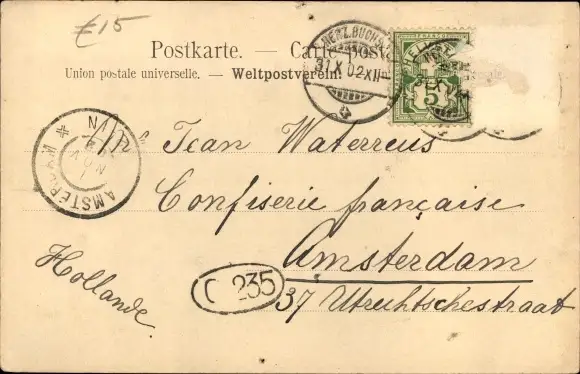 £15
Postkarte. — Carte postale
Union postale universelle. — Weltpostverein.
HERZ.BUCHS
31.X.02.XII-
HELVETIA
FRANCO
5
Mr Jean Waterreus
Confiserie française
Amsterdam
37 Utrechtschestraat
Hollande
AMSTERDAM
NOV
C 235